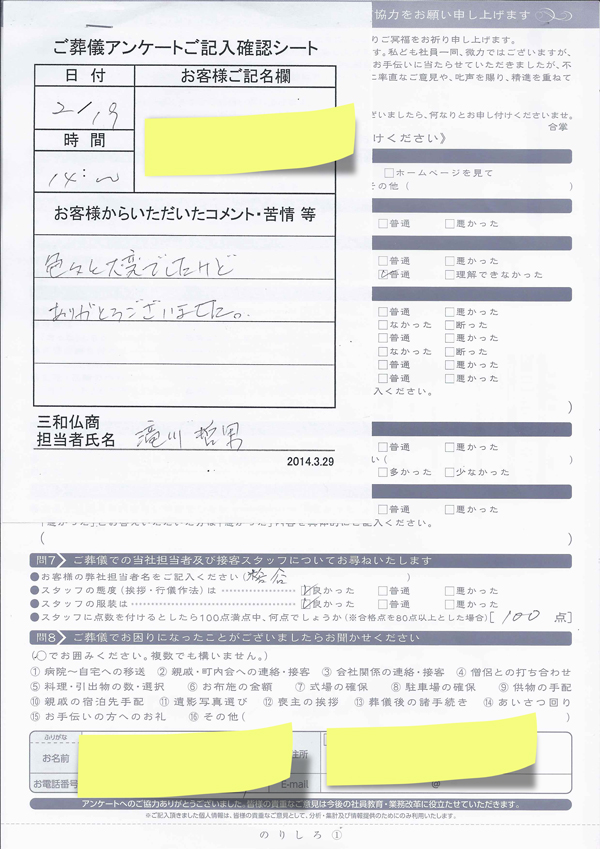 協力をお願い申し上げます
ご葬儀アンケートご記入確認シート
日 付
お客様ご記名欄
2/19
時 間
14:〜
お客様からいただいたコメント・苦情 等
色々と大変でしたけど
ありがとうございました。
三和仏商
担当者氏名 滝川 哲男
2014.3.29
りご冥福をお祈り申し上げます。
す。私ども社員一同、微力ではございますが、
お手伝いに当たらせていただきましたが、不
に率直なご意見や、叱声を賜り、精進を重ねて
ざいましたら、何なりとお申し付けくださいませ。
合掌
けください》
□ホームページを見て
その他( )
□普通 □悪かった
□普通 □理解できなかった
□普通 □悪かった
□なかった □断った
□普通 □悪かった
□なかった □断った
□普通 □悪かった
入ください。
)
□普通 □悪かった
い( )
□多かった □少なかった
□普通 □悪かった
( )
問7 ご葬儀での当社担当者及び接客スタッフについてお尋ねいたします
●お客様の弊社担当者名をご記入ください( )
●スタッフの態度(挨拶・行儀作法)は □良かった □普通 □悪かった
●スタッフの服装は □良かった □普通 □悪かった
●スタッフに点数を付けるとしたら100点満点中、何点でしょうか(※合格点を80点以上とした場合)[ 100 点]
問8 ご葬儀でお困りになったことがございましたらお聞かせください
(○でお囲みください。複数でも構いません。)
①病院〜自宅への移送 ②親戚・町内会への連絡・接客 ③会社関係の連絡・接客 ④僧侶との打ち合わせ
⑤料理・引出物の数・選択 ⑥お布施の金額 ⑦式場の確保 ⑧駐車場の確保 ⑨供物の手配
⑩親戚の宿泊先手配 ⑪遺影写真選び ⑫喪主の挨拶 ⑬葬儀後の諸手続き ⑭あいさつ回り
⑮お手伝いの方へのお礼 ⑯その他( )
ふりがな
お名前
住所
お電話番号
E-mail
@
アンケートへのご協力ありがとうございました。皆様の貴重なご意見は今後の社員教育・業務改革に役立たせていただきます。
※ご記入頂きました個人情報は、皆様の貴重なご意見として、分析・集計及び情報提供のためにのみ利用いたします。
のりしろ①